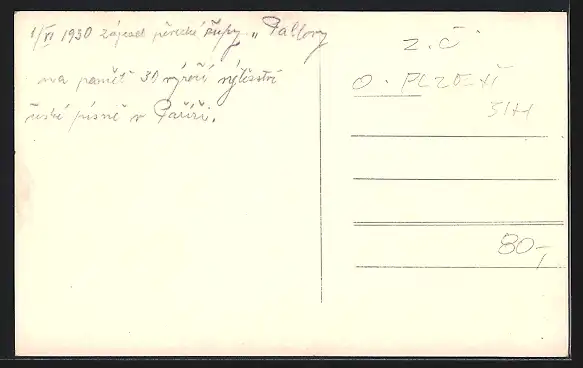 1/VI 1930 zájezd pěvecké župy „Pallovy
na paměť 30 výročí vítězství
české písně v Paříži.
Z. Č
O. PLZEŇ
80,-